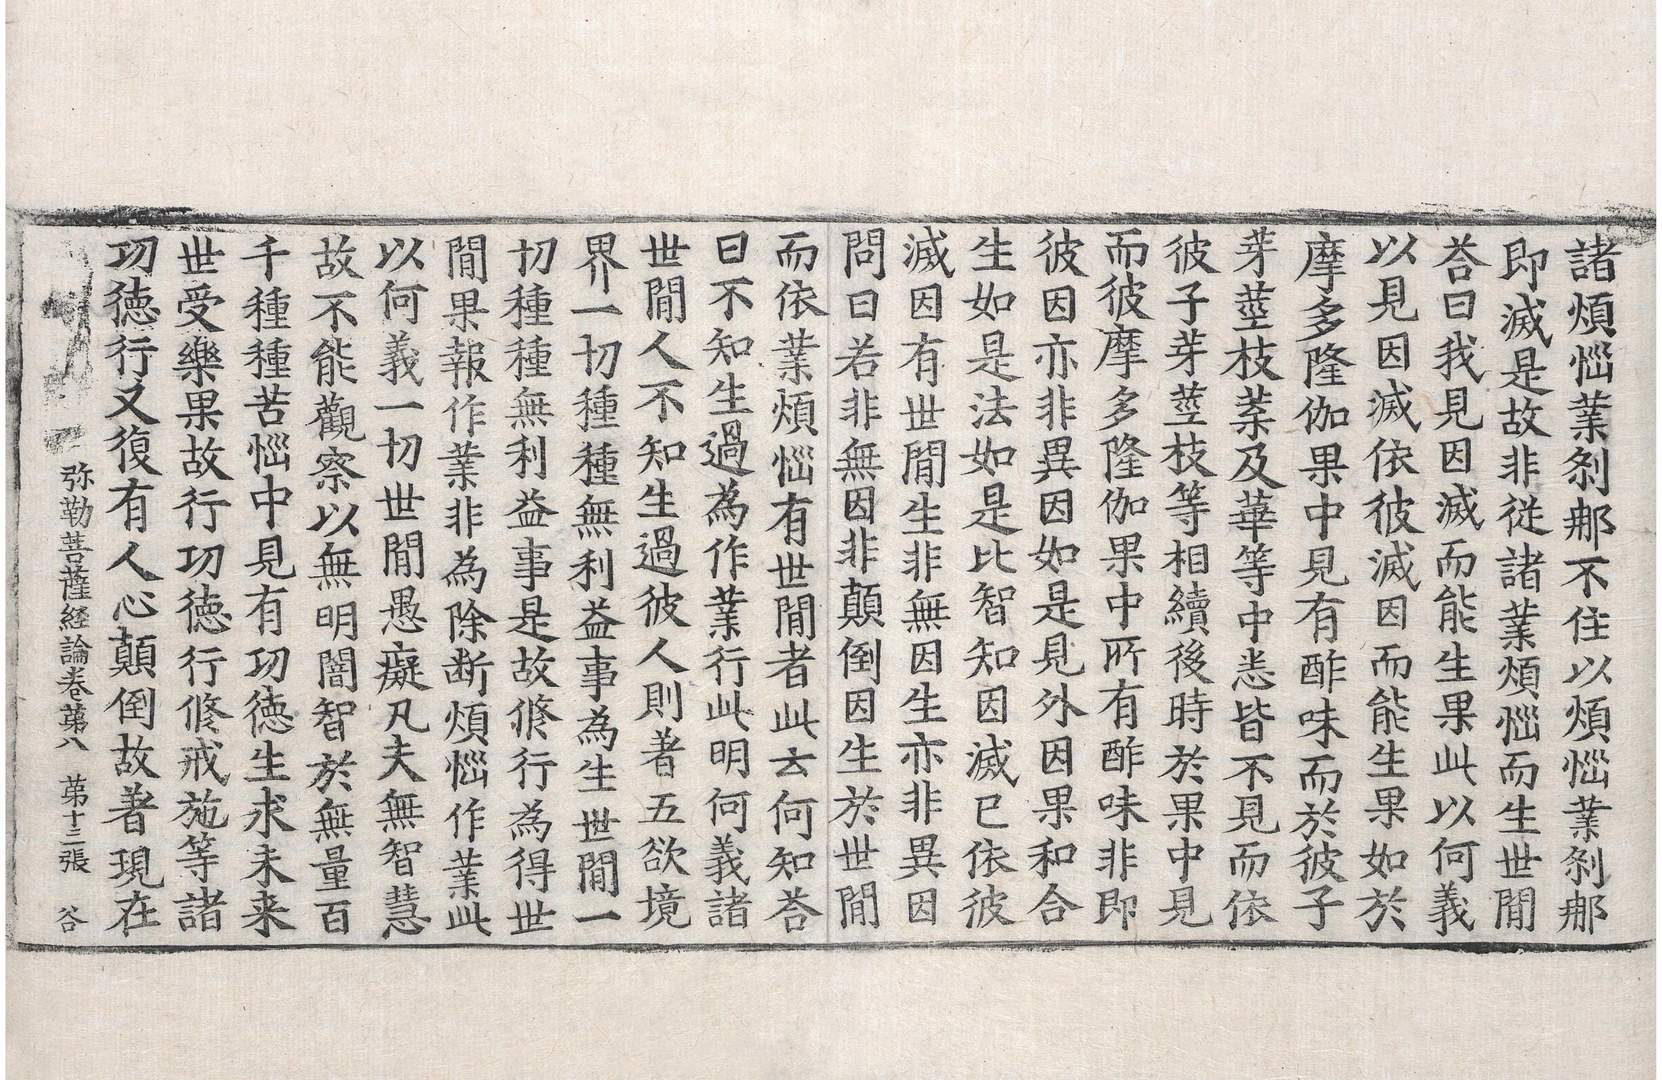 諸煩惱業刹那不住以煩惱業刹那
即滅是故非從諸業煩惱而生世閒
荅曰我見因滅而能生果此以何義
以見因滅依彼滅因而能生果如於
摩多隆伽果中見有酢味而於彼子
芽莖枝葉及華等中悉皆不見而依
彼子芽莖枝等相續後時於果中見
而彼摩多隆伽果中所有酢味非即
彼因亦非異因如是見外因果和合
生如是法如是比智知因滅已依彼
滅因有世閒生非無因生亦非異因
問曰若非無因非顛倒因生於世閒
而依業煩惱有世閒者此云何知荅
曰不知生過為作業行此明何義諸
世閒人不知生過彼人則著五欲境
界一切種種無利益事為生世閒一
切種種無利益事是故修行為得世
閒果報作業非為除断煩惱作業此
以何義一切世閒愚癡凡夫無智慧
故不能觀察以無明闇智於無量百
千種種苦惱中見有功徳生求未来
世受樂果故行功徳行修戒施等諸
功徳行又復有人心顛倒故著現在
弥勒菩薩経論卷苐八　苐十二張　谷